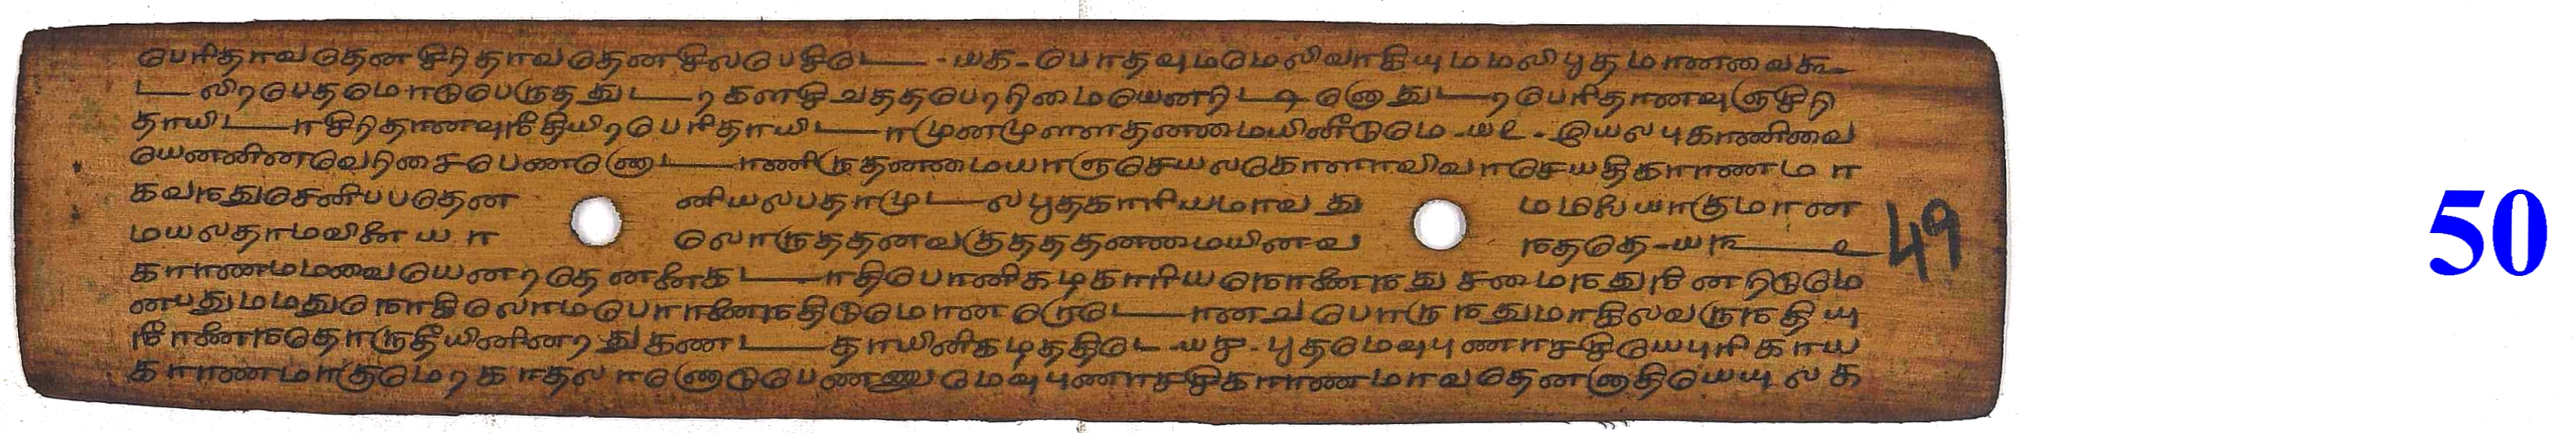 பெரிதாவதென சிறிதாவதென சிலபெசிடெ - யக - பொதவுமமெலிவாகியுமமலிபூதமானவைகூ
டலிறபெதமொடுபெருதது டறகள சிவததபெறறிமையெனறிடினெனு துடறபெரிதானவுளுசிறி
தாயிடாசிறிதானவுநீதியிறபெரிதாயிடாமுனமுளளதனமையினீடுமெ - ய௨ - இயலபுகாணிவை
யெனனினவெறிசைபெணணெடாணிருதனமையாளுசெயலகொளாவிவாசெயதிகாரணமா
கவநதுசெனிபபதென னியலபதாமுடலபூதகாரியமாவது மமயெயாகுமான
மயலதாமவினையா லொருததனவகுதததனமையினவ நததெ - ய௩
காரணமமவையெனறதெனனைகடாதிபொனிகழகாரியஙொணைநது சமைநதுநினறிடுமெ
னபதுமமதுஙொகிலொமபொரணைநதிடுமொனறெடொனவ பொருநதுமாகிலவருநதியு
நீரணைநதொருதீயினினறதுகணடதாயினிகழததிடெ - ய௪ - பூதமெவுபுணரசசியெபுரிகாய
காரணமாகுமெறகாதலாணெடுபெணணுமெவுபுணரசசிகாரணமாவதெனனாதியெயுலக
49
50